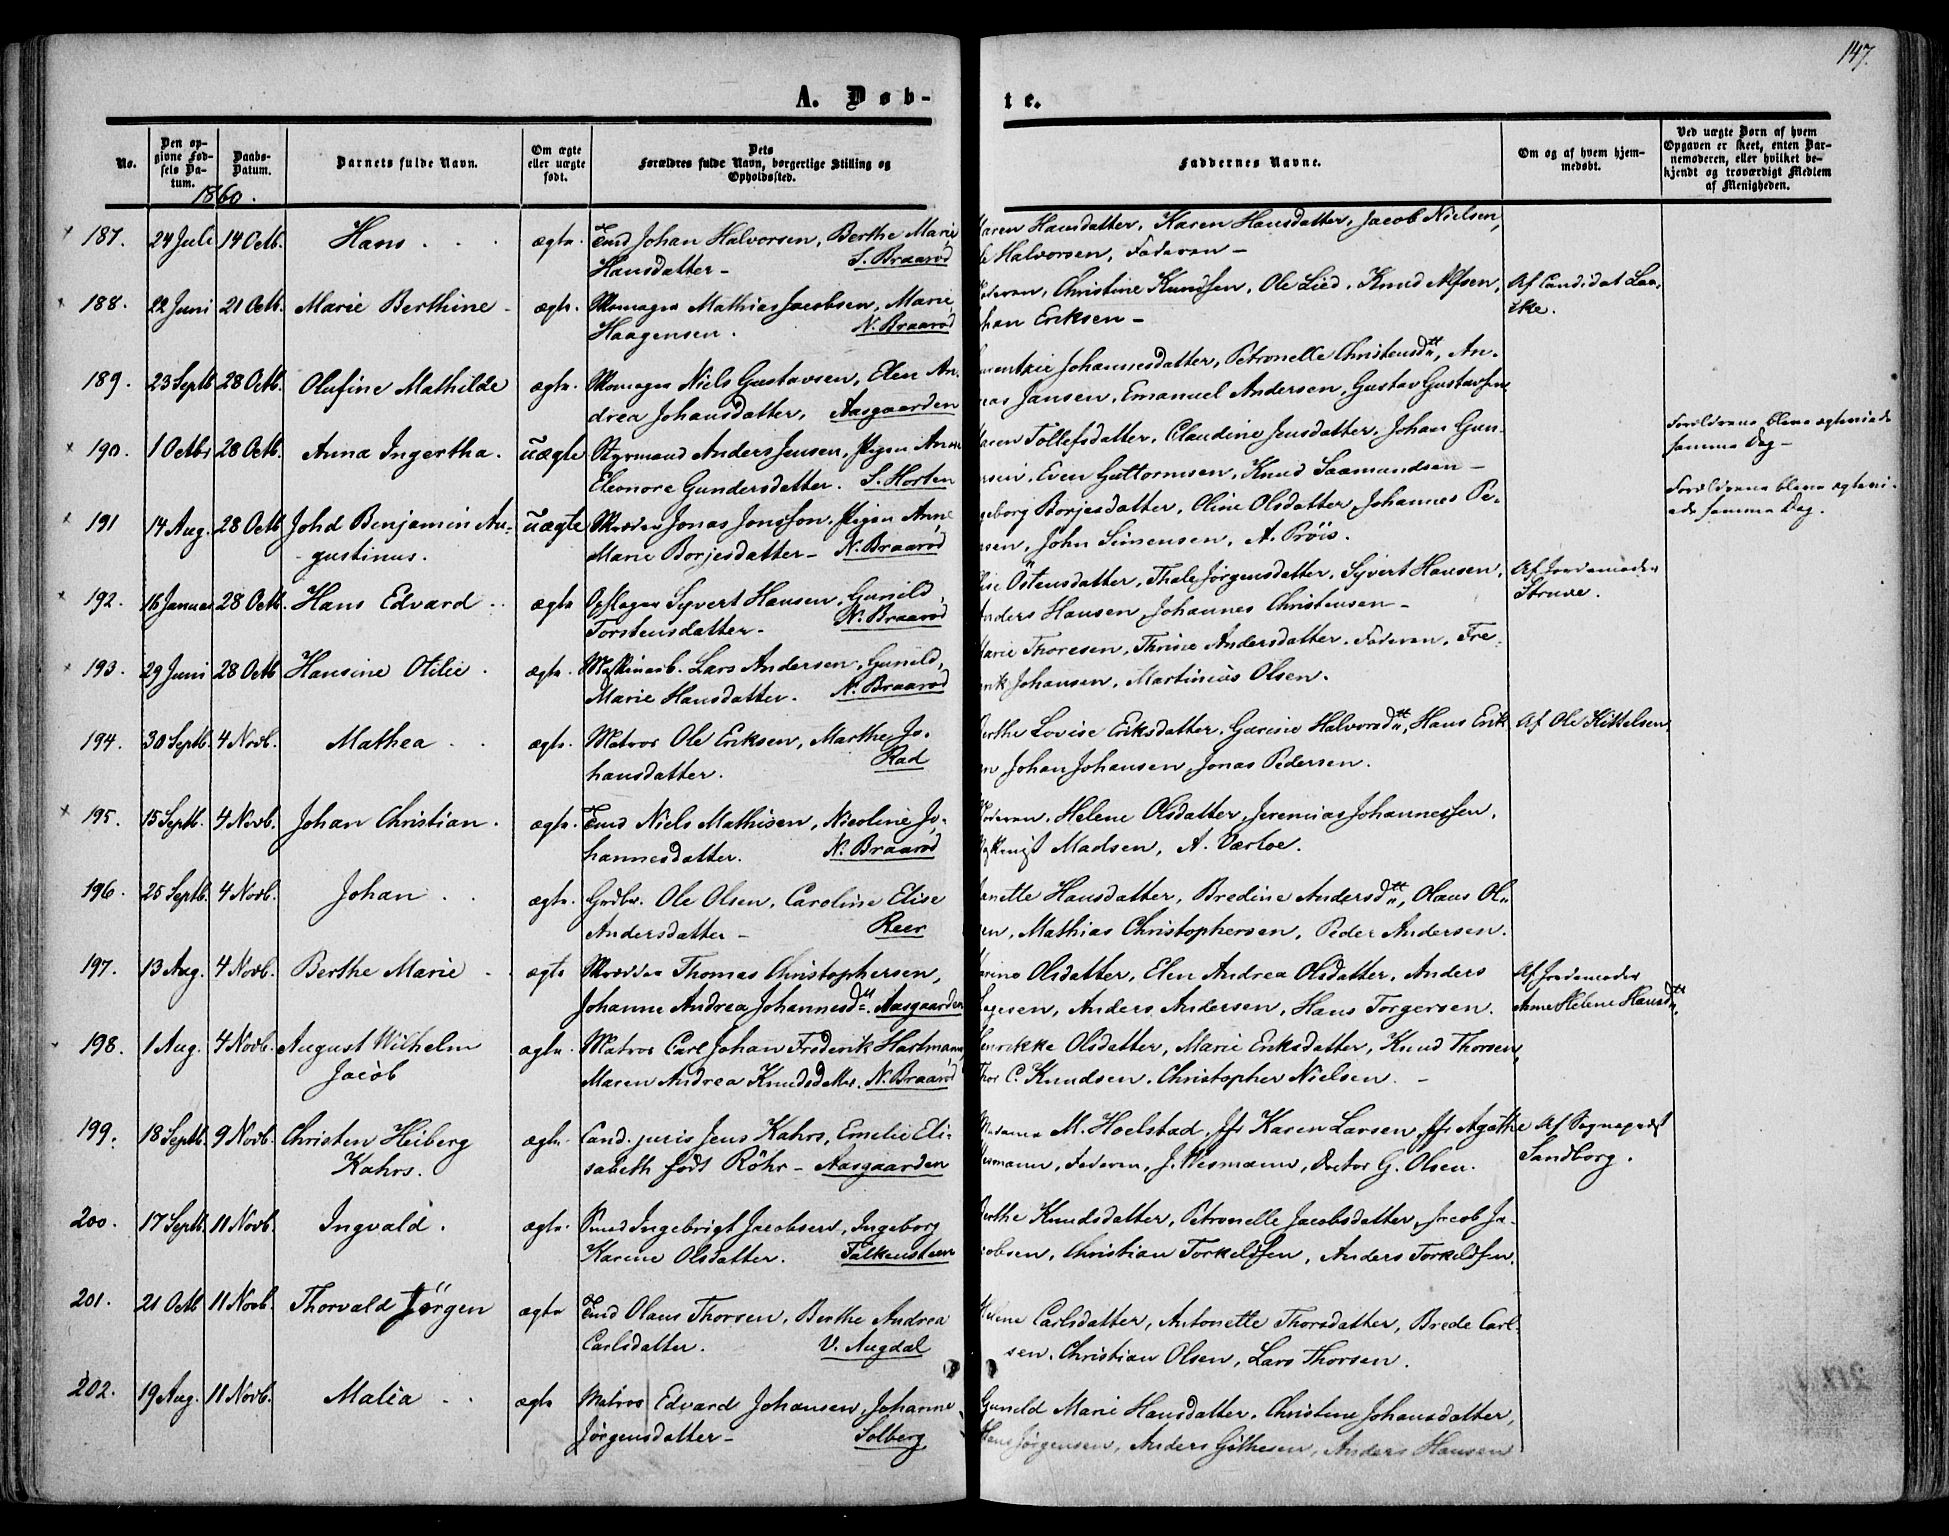 147.
A. Døb-
te.
No.
Den op-
givne Fød-
sels Da-
tum.
Daabs-
Datum.
Barnets fulde Navn.
Om ægte
eller uægte
født.
Dets
Forældres fulde Navn, borgerlige Stilling og
Opholdssted.
Faddernes Navne.
Om og af hvem hjem-
medøbt.
Ved uægte Børn af hvem
Opgaven er skeet, enten Bar-
nemoderen, eller hvilket be-
kjendt og troværdigt Medlem
af Menigheden.
1860.
187. 24 Juli 14 Octb. Hans ægte. Johan Halvorsen, Berthe Marie
Hansdatter - S. Braarød
Maren Hansdatter, Karen Hansdatter, Jacob Nielsen,
Halvorsen, Faderen -
188. 22 Juni 21 Octb. Marie Berthine ægte. Skomager Mathias Jacobsen, Marie
Haagensen. N. Braarød
Christine Knudsen, Ole Lied, Knud Alfsen,
Johan Eriksen -
Af Candidat
189. 23 Septb 28 Octb. Olufine Mathilde ægte. Skomager Niels Gustavsen, Elen An-
drea Johansdatter, Aasgaarden
Johannesdatter, Petronelle Christensdtt, An-
Jansen, Emanuel Andersen, Gustav Gustavsen
190. 1 Octbr 28 Octb. Anna Ingertha. uægte Styrmand Anders Jensen, Pigen Anne
Eleonore Gundersdatter. S. Horten
Maren Tollefsdatter, Claudine Jensdatter, Johan Gun-
Even Guttormsen, Knud Saamundsen -
Forældrene bleve ægteviede
samme Dag -
191 14 Aug. 28 Octb. Johd Benjamin Au-
gustinus.
uægte Skræder Jonas Jonsson, Pigen Anne
Marie Borjesdatter - N. Braarød
Ingeborg Borjesdatter, Oline Olsdatter, Johannes Pe-
John Simensen, A. Prøis.
Forældrene bleve ægtevi-
ede samme Dag.
192. 16 Januar 28 Octb. Hans Edvard ægte Opslager Syvert Hansen, Gunild
Torstensdatter - N. Braarød
Østensdatter, Thale Jørgensdatter, Syvert Hansen,
Anders Hansen, Johannes Christensen -
Af Jordemoder
Struve.
193. 29 Juni 28 Octb Hansine Otilie ægte. Maskinarb. Lars Andersen, Gunild
Marie Hansdatter. N. Braarød
Marie Thoresen, Thrine Andersdatter, Faderen, Fre-
Johansen, Martinius Olsen.
194. 30 Septb. 4 Novb. Mathea ægte. Matros Ole Eriksen, Marthe Jo-
hansdatter. Rad
Berthe Lovise Eriksdatter, Gurine Halvorsdtt, Hans Erik
Johan Johansen, Jonas Pedersen.
Af Ole Kittelsen
195. 15 Septb. 4 Novb. Johan Christian. ægte. Niels Mathisen, Nicoline Jo-
hannesdatter. N. Braarød
Helene Olsdatter, Jeremias Johannessen,
Madsen, A. Værloe.
196. 25 Septb. 4 Novb. Johan ægte. Grdbr. Ole Olsen, Caroline Elise
Andersdatter - Reer
Hansdatter, Bredine Andersdtt, Olaus Ol-
Mathias Christophersen, Peder Andersen.
197. 13 Aug. 4 Novb. Berthe Marie ægte Skrædder Thomas Christophersen,
Johanne Andrea Johannesdtt. Aasgaarden
Olsdatter, Elen Andrea Olsdatter, Anders
Anders Andersen, Hans Torgersen.
Af Jordemoder
Anne Helene Hansdtt.
198. 1 Aug. 4 Novb. August Wilhelm
Jacob
ægte. Matros Carl Johan Frederik Hartmann
Maren Andrea Knudsdatter. N. Braarød
Henrikke Olsdatter, Marie Eriksdatter, Knud Thorsen,
Thor C. Knudsen, Christopher Nielsen. -
199. 18 Septb. 9 Novb. Christen Heiberg
Kahrs.
ægte. Cand. juris Jens Kahrs, Emelie Eli-
sabeth født Röhr - Aasgaarden
Madame M. Hoelstad, Jfr Karen Larsen, Jfr Agathe
Wesmann, Faderen, J. Wesmann, Doctor G. Olsen.
Af Sognepræst
Sandborg.
200. 17 Septb. 11 Novb. Ingvald. ægte. Ingebrigt Jacobsen, Ingeborg
Karine Olsdatter. Falkensteen
Berthe Knudsdatter, Petronelle Jacobsdatter, Jacob Ja-
cobsen, Christian Torkeldsen, Anders Torkeldsen.
201. 21 Octb 11 Novb. Thorvald Jørgen ægte Olaus Thorsen, Berthe Andrea
Carlsdatter. V. Augdal
Helene Carlsdatter, Antonette Thorsdatter, Brede Carl-
sen, Christian Olsen, Lars Thorsen.
202. 19 Aug. 11 Novb. Malea ægte Matros Edvard Johansen, Johanne
Jørgensdatter - Solberg
Gunild Marie Hansdatter, Christine Johansdatter,
Hans Jørgensen, Anders Githesen, Anders Hansen